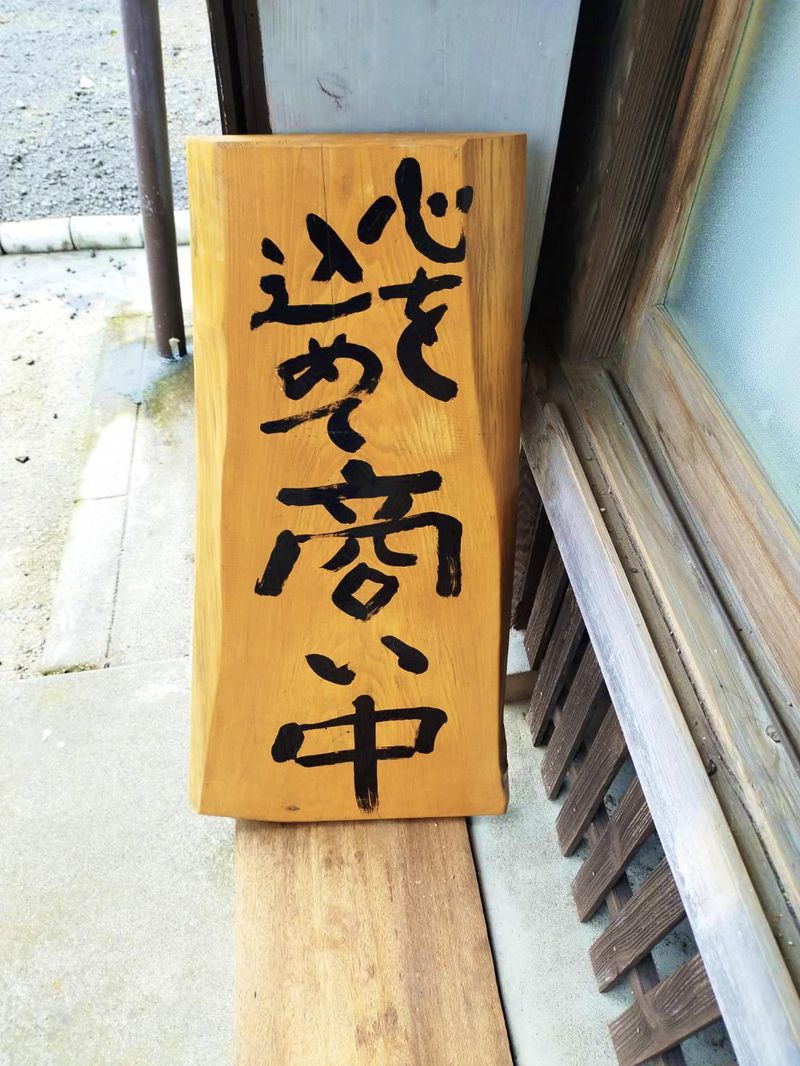 心を
込めて
商い中